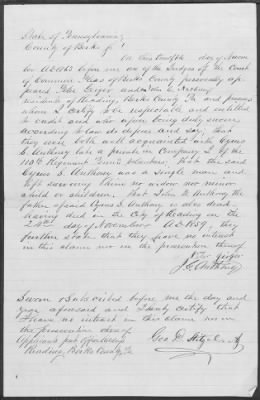 State of Pennsylvania,
County of Berks
On this twelfth day of
A.D. 1865 before me one of the Judges of the Court
of Common Pleas of Berks County personally ap-
peared Peter Geiger and John E. Anthony
residents of Reading, Berks County Pa and persons
whom I certify to be respectable and entitled
to credit and who upon being duly sworn
according to law do depose and say, that
they were both well acquainted with Cyrus
S. Anthony late a private in Company of the
Regiment Penn'a Volunteers, that the said
Cyrus S. Anthony was a single man and
left surviving him no widow nor minor
child or children, that John N. Anthony the
father of said Cyrus S. Anthony is also dead
having died on the City of Reading on the
24th day of November A.D. 1859, they
further state that they have no interest
in this claim nor in the prosecution thereof
Peter Geiger
Anthony
Sworn & Subscribed before me the day and
year aforesaid and I hereby certify that
I have no interest in this claim nor in
the prosecution thereof
Reading, Berks County, Pa
Geo. D.